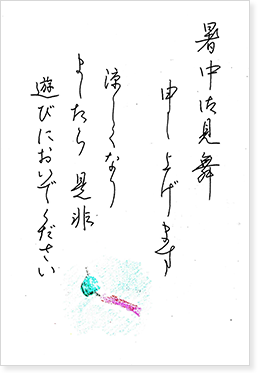 暑中御見舞
申し上げます
涼しくなり
ましたら是非
遊びにおいでください